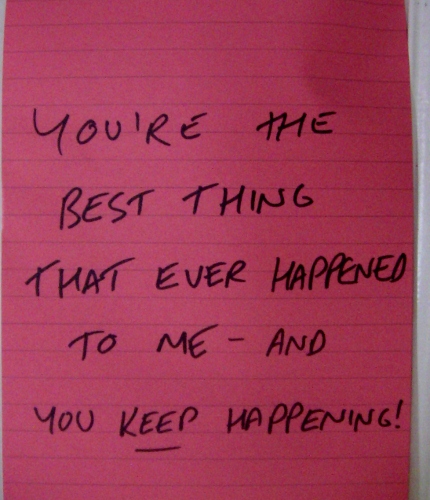 YOU'RE THE
BEST THING
THAT EVER HAPPENED
TO ME - AND
YOU KEEP HAPPENING!